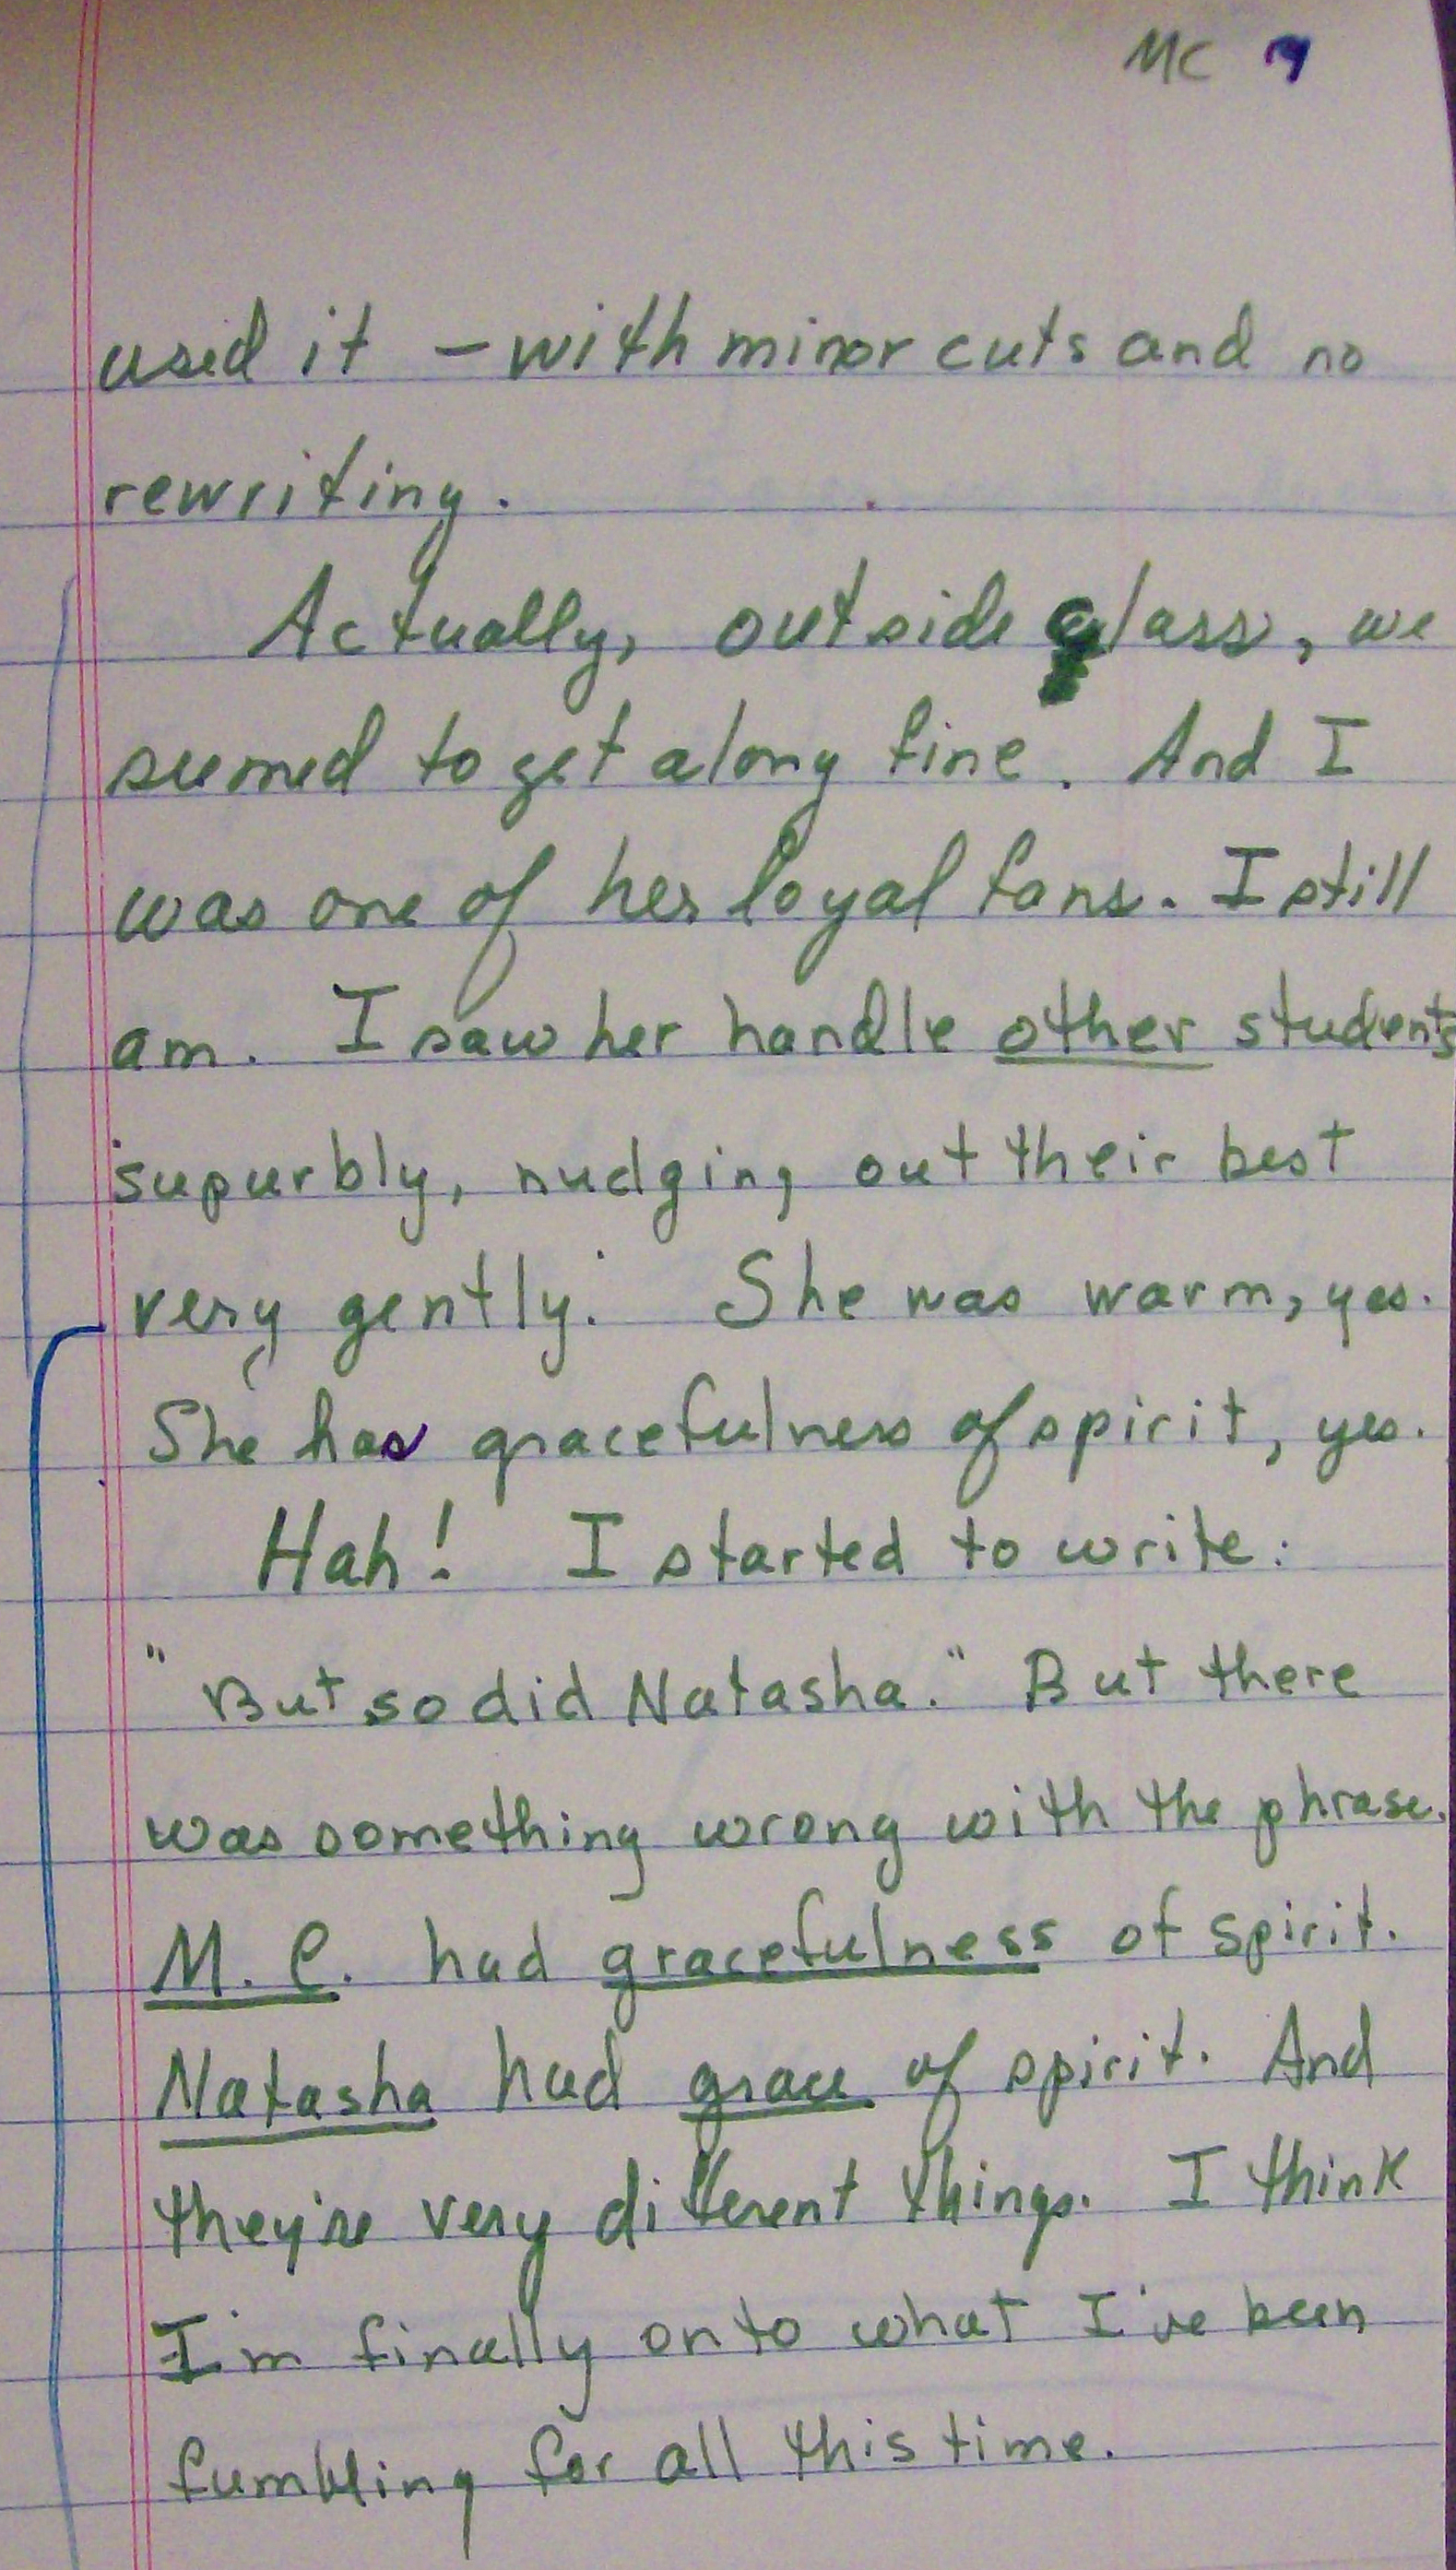 MC 9
used it – with minor cuts and no
rewriting.
Actually, outside class, we
seemed to get along fine. And I
was one of her loyal fans. I still
am. I saw her handle other students
supurbly, nudging out their best
very gently. She was warm, yes.
She has gracefulness of spirit, yes.
Hah! I started to write:
"But so did Natasha." But there
was something wrong with the phrase.
M. C. had gracefulness of spirit.
Natasha had grace of spirit. And
they're very different things. I think
I'm finally onto what I've been
fumbling for all this time.